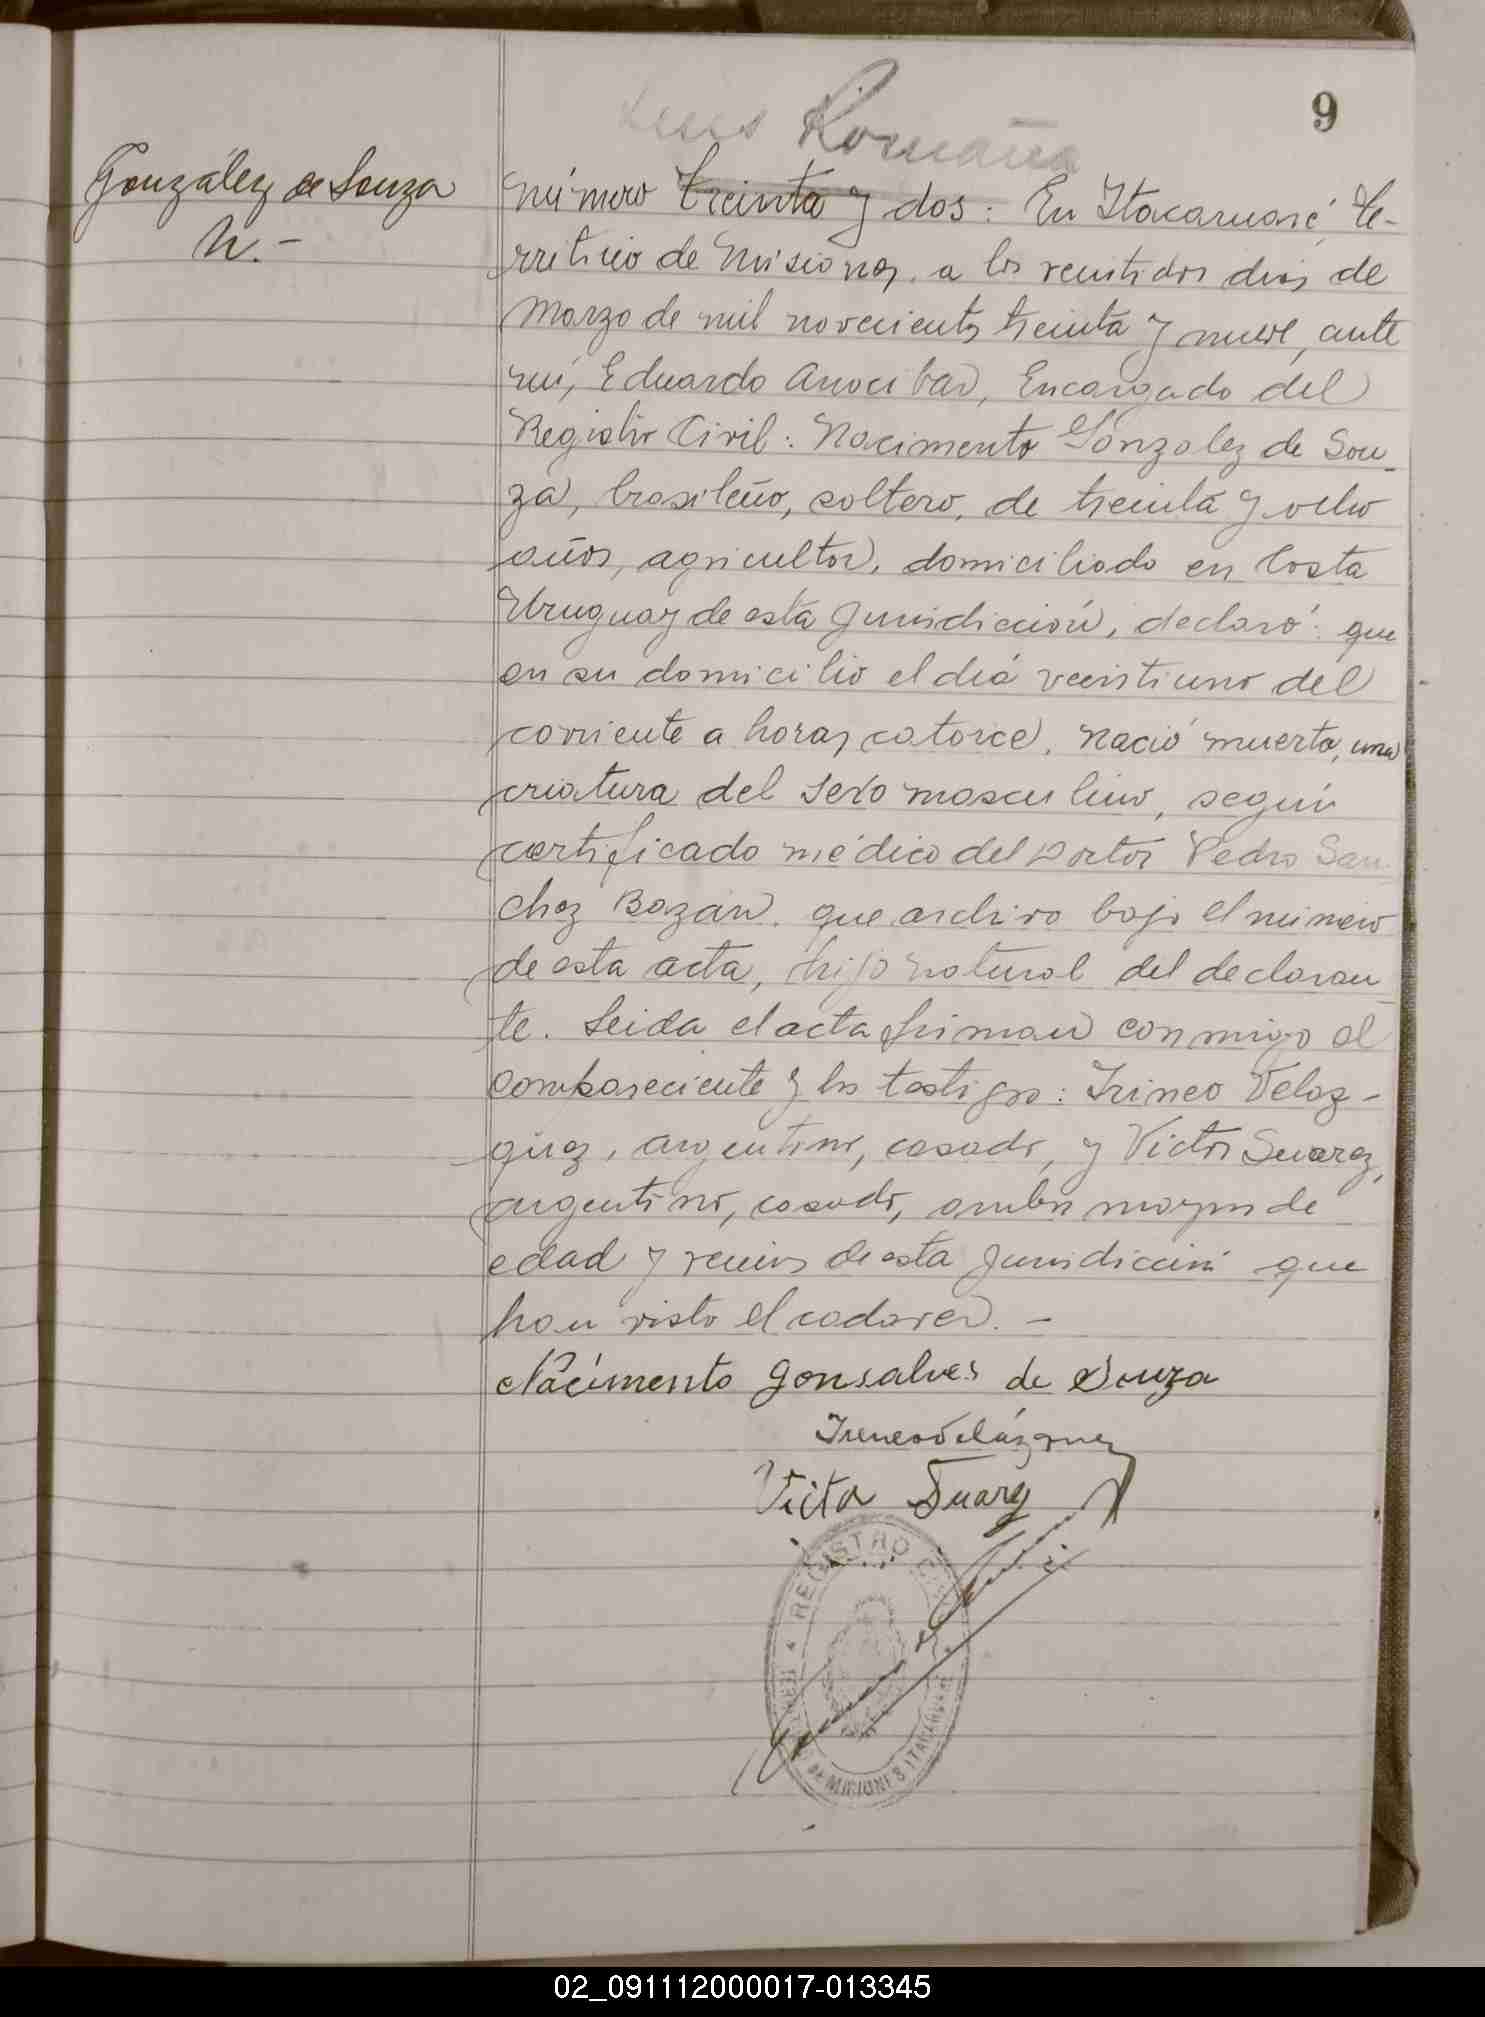 9
Romaña
González de Souza
N.-
Número treinta y dos: En Itacaruaré, Te-
rritorio de Misiones, a los veintidos dias de
Marzo de mil novecientos treinta y nueve, ante
mí, Eduardo Anocibar, Encargado del
Registro Civil: Nacimento Gonzalez de Sou-
za, brasileño, soltero, de treinta y ocho
años, agricultor, domiciliado en Costa
Uruguay de esta jurisdicción, declaró: que
en su domicilio el dia veintiuno del
corriente a horas catorce, nació muerta, una
criatura del sexo masculino, según
certificado médico del Doctor Pedro San-
chez Bazan, que archivo bajo el número
de esta acta, hijo natural del declaran-
te. Leida el acta firman conmigo el
compareciente y los testigos: Irineo Velaz-
quez, argentino, casado, y Victor Suarez,
argentino, casado, ambos mayores de
edad y vecinos de esta jurisdicción que
han visto el cadaver. -
Nacimento Gonsalves de Souza
Ireneo Velázquez
Victor Suarez
REGISTRO CIVIL
DE MISIONES ITACARUARE
02_091112000017-013345